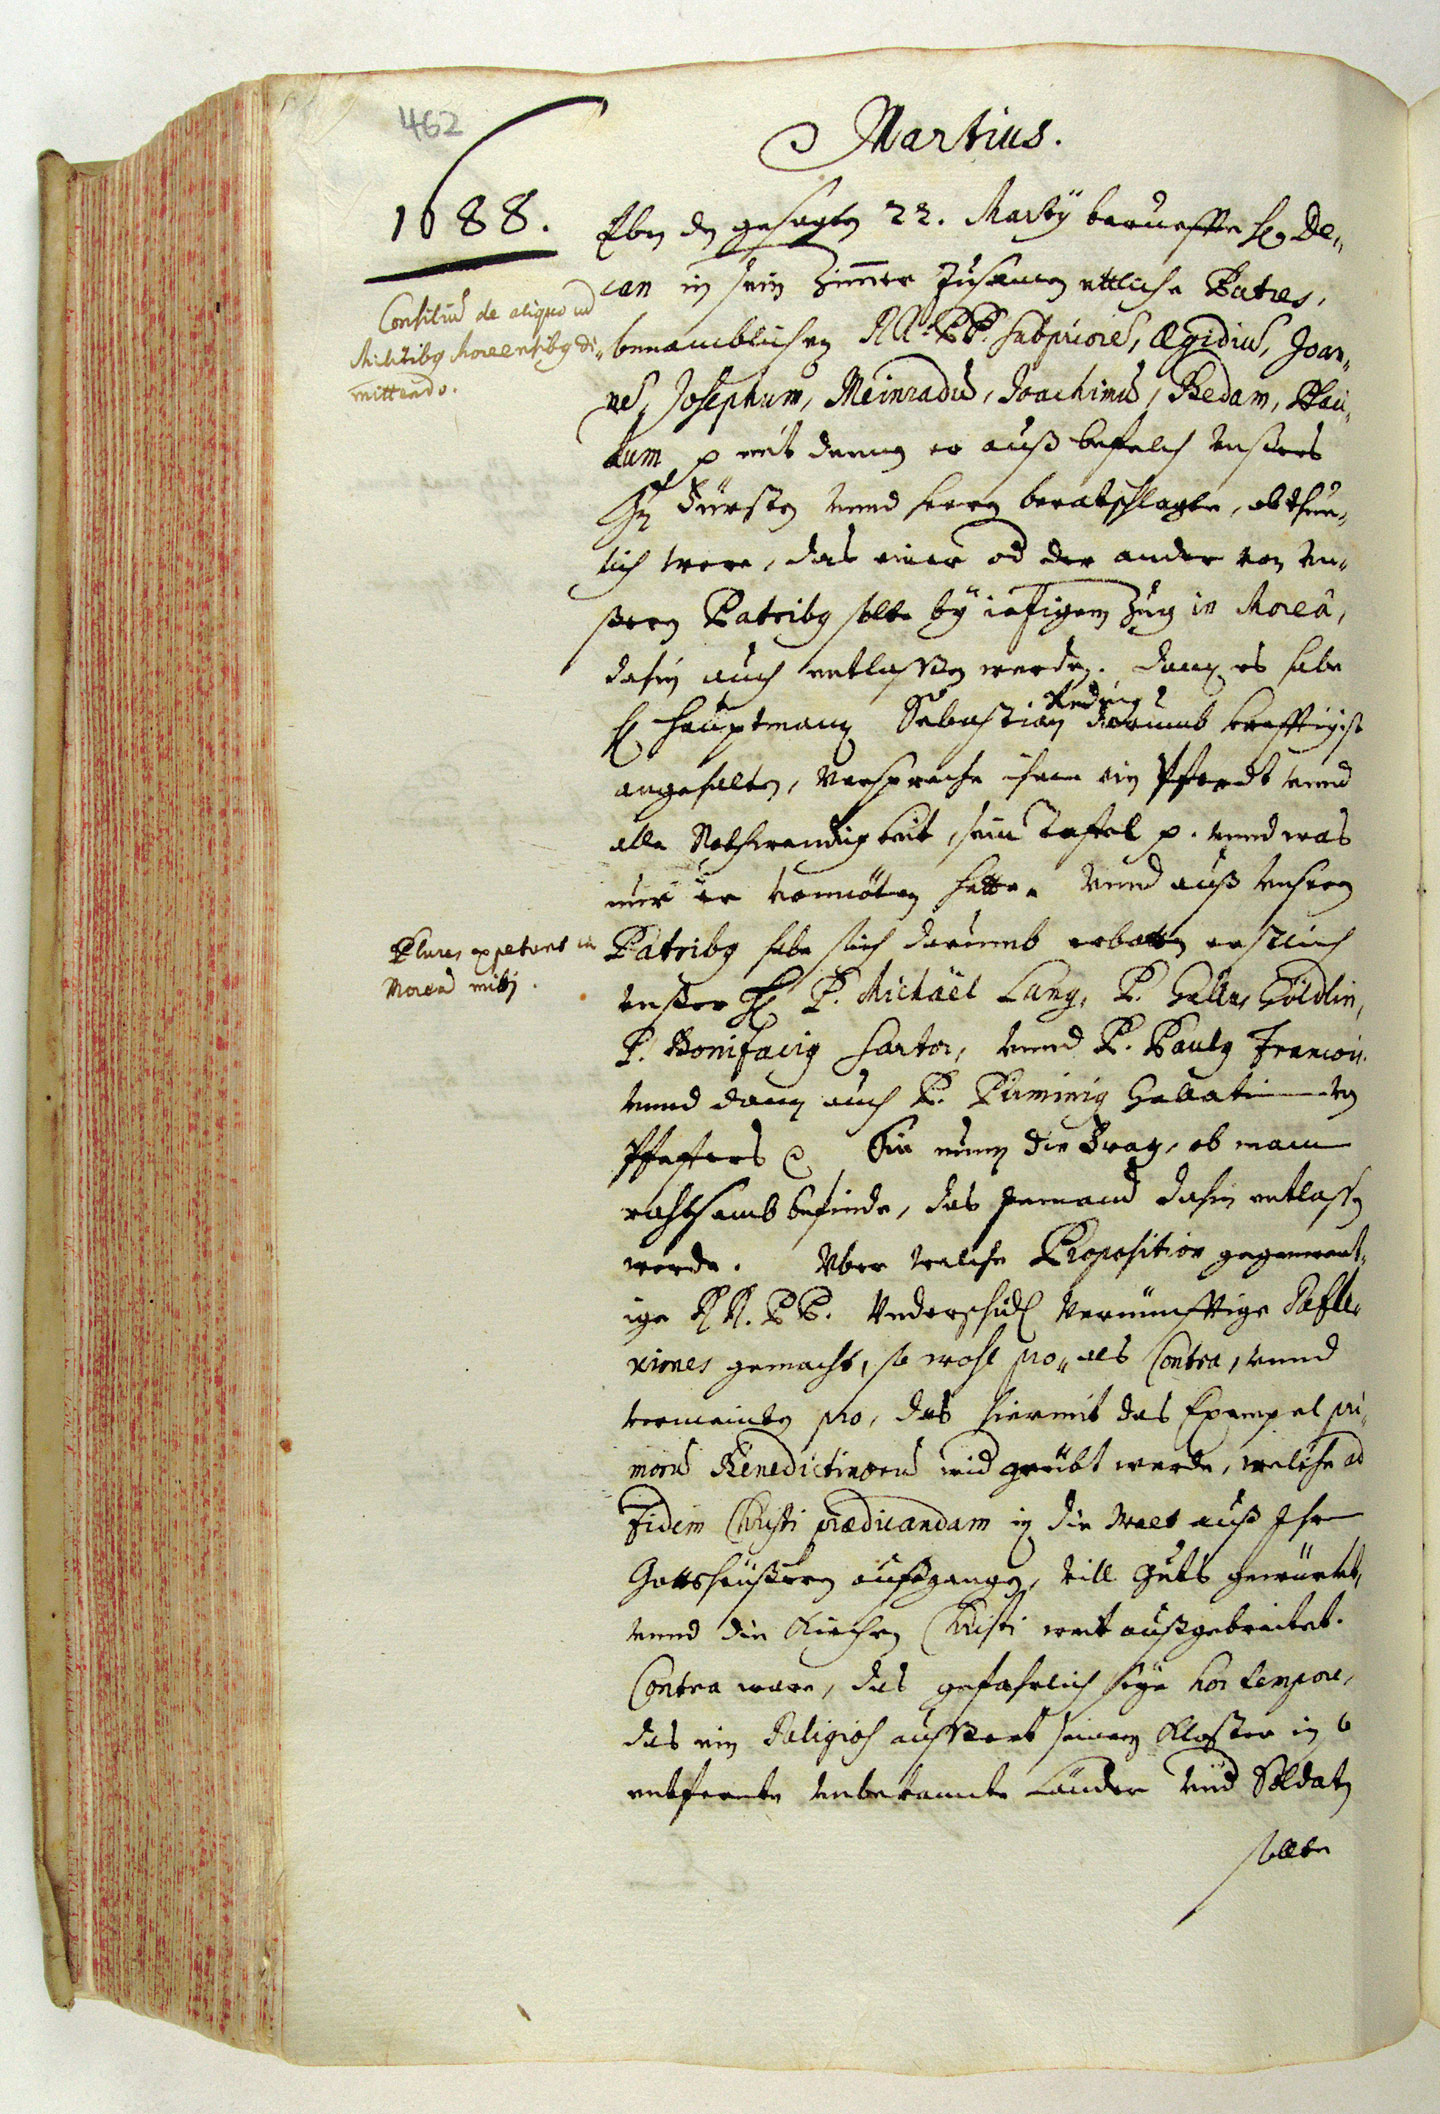 462
Martius.
1688.
Consiliũ de aliquo ad
Militibꝰ Moreensibꝰ di=
mittendo.
Eben den gesagten 22. Martÿ berueffte H. De=
can in sein Zimmer zusamen ettliche Patres,
benamblichen RR. PP. Subpriorẽ, Ægidiũ, Joan=
nẽ, Josephum, Meinradũ, Joachimũ, Bedam, Pau=
lum p mit denen er auß befelch unsers
Gn Fürsten unnd Herren berathschlagte, ob thun=
lich were, das einer od der ander von un=
seren Patribꝰ solte bÿ ietzigem Zug in Moreâ,
dahin auch entlassen werden. Dann es habe
H Hauptmann Sebastian Reding darumb krefftigist
angehalten, verspreche ihme ein Pferdt unnd
alle Nothwendigkeit, sein Tafel p. unnd was
mer er vonnöten hette. Unnd auß unseren
Plures expetunt in
Moreã mitti.
Patribꝰ habe sich darumb erbotten erstlich
unser H P. Michaël Lang, P. Gallus Göldlin,
P. Bonifaciꝰ Sartor, unnd P. Paulꝰ Francois.
unnd dann auch P. Pirminiꝰ Gallati von
Pfeffers Sie nun die Frag, ob man
rahtsamb befinde, das jemand dahin entlassen
werde. Uber welche Proposition gegenwert=
ige RR. PP. underschidl vernünfftige Refle=
xiones gemacht, so wohl pro= als Contra, unnd
vermeinten pro, das hiermit das Exempel pri=
morũ Benedictinorũ wid geübt werde, welche ad
Fidem Christi prædicandam in die Welt auß Ihr
Gottsheüseren außgangen, vill Guts gewürket,
unnd die Kirchen Christi weit außgebreitet.
Contra ware, das gefahrlich seÿe hoc tempore,
das ein Religios aussert seinem Kloster in
entfernte unbekannte Länder und Soldaten
sollte